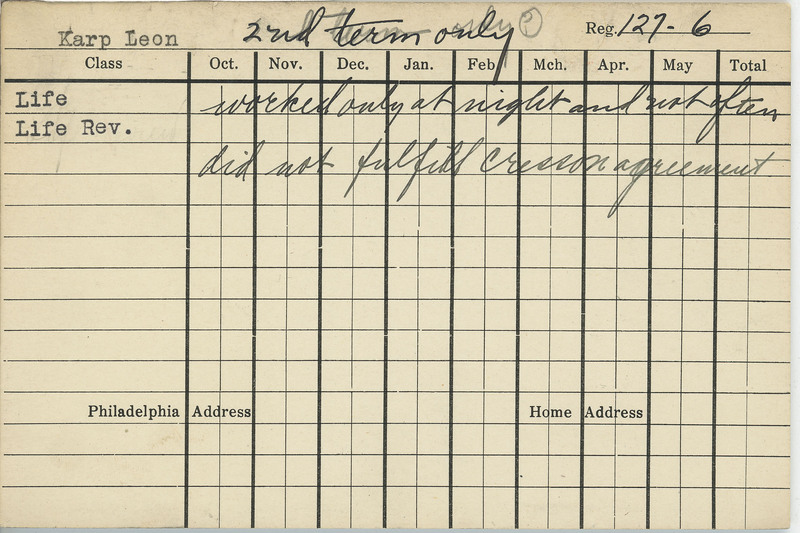 Karp Leon 2nd term only Reg. 127-6
Class Oct. Nov. Dec. Jan. Feb Mch. Apr. May Total
Life worked only at night and not often
Life Rev.
did not fulfill Cresson agreement
Philadelphia Address Home Address